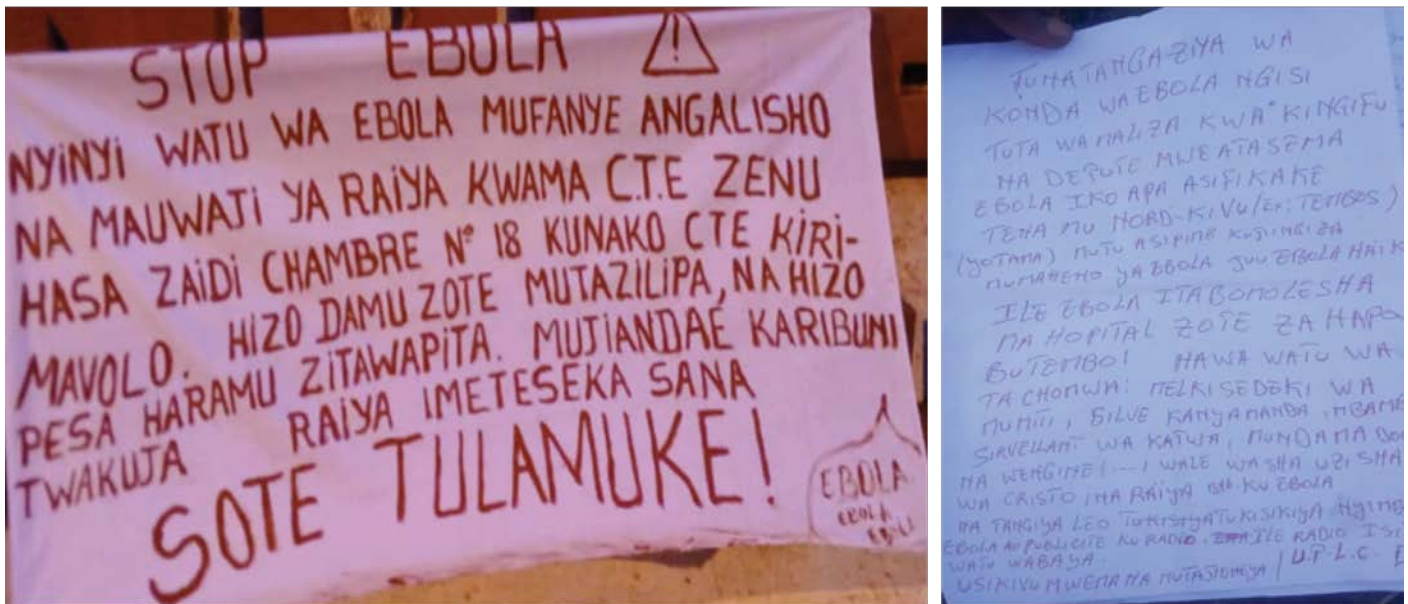 STOP EBOLA
NYINYI WATU WA EBOLA MUFANYE ANGALISHO
NA MAUWAJI YA RAIYA KWAMA C.T.E ZENU
HASA ZAIDI CHAMBRE N° 18 KUNAKO CTE KIRI-
MAVOLO. HIZO DAMU ZOTE MUTAZILIPA, NA HIZO
PESA HARAMU ZITAWAPITA. MUJIANDAE KARIBUNI
TWAKUJA RAIYA IMETESEKA SANA
SOTE TULAMUKE!
EBOLA
EBOLA
TUNATANGAZIYA WA
KONDA WA EBOLA NGISI
TUTA WAMALIZA KWA KINGIFU
NA DEPUTE MWE ATASEMA
EBOLA IKO APA ASIFIKAKE
TENA MU NORD-KIVU/EX: TEMBOS)
(YOTAMA) MUTU ASIPIME KUJIINGIZA
MUMANENO YA EBOLA JUU EBOLA
ILE EBOLA ITABOMOLESHA
MA HOPITAL ZOTE ZA HAPA
BUTEMBO! HAWA WATU WA
TACHOMWA: MELKISEDEKI WA
KANYAMANDA
WA KATWA,
NA WENGINE
WA CRISTO, NA RAIYA KU EBOLA
NA TANGIYA LEO
EBOLA AO PUBLICITE KU RADIO, ILE RADIO
WATU WABAYA
USIKIVU MWEMA NA | U.P-L.C.